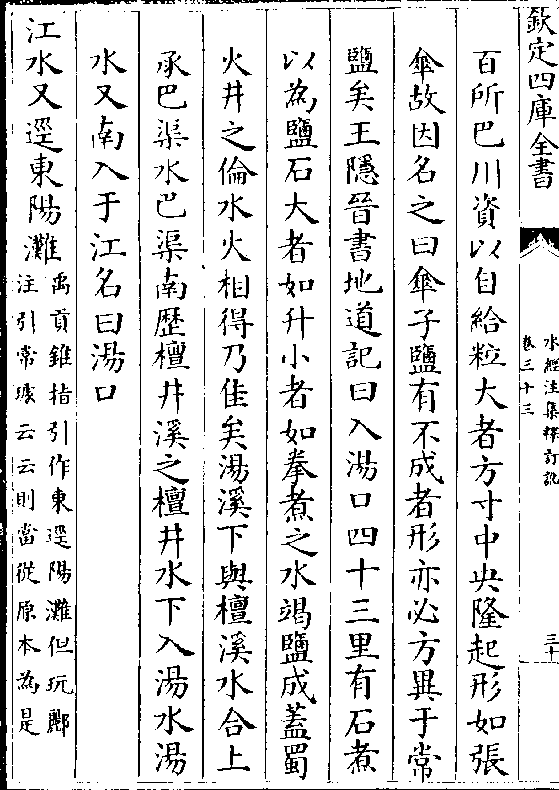 欽定四庫全書
水經注集釋訂訛
卷三十三
三十
百所巴川資以自給粒大者方寸中央隆起形如張
傘故因名之曰傘子鹽有不成者形亦必方異于常
鹽矣王隱晉書地道記曰入湯口四十三里有石煮
以為鹽石大者如升小者如拳煮之水竭鹽成蓋蜀
火井之倫水火相得乃佳矣湯溪下與檀溪水合上
承巴渠水巴渠南歷檀井溪之檀井水下入湯水湯
水又南入于江名曰湯口
江水又逕東陽灘
禹貢錐指引作東逕陽灘但玩酈
注引常璩云云則當從原本為是